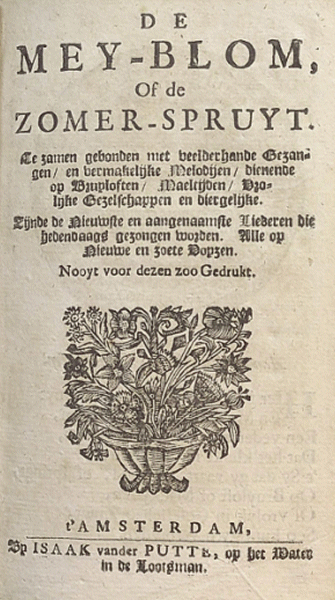 DE
MEY-BLOM,
Of de
ZOMER-SPRUYT.
Te zamen gebonden met veelderhande Gezan-
gen / en vermakelijke Melodijen / dienende
op Bruyloften / Maeltijden / Vro-
lijke Gezelschappen en diergelijke.
Zijnde de Nieuwste en aangenaamste Liederen die
hedendaags gezongen worden. Alle op
Nieuwe en zoete Voyzen.
Nooyt voor dezen zoo Gedrukt.
t'AMSTERDAM,
By ISAAK vander PUTTE, op het Water
in de Lootsman.